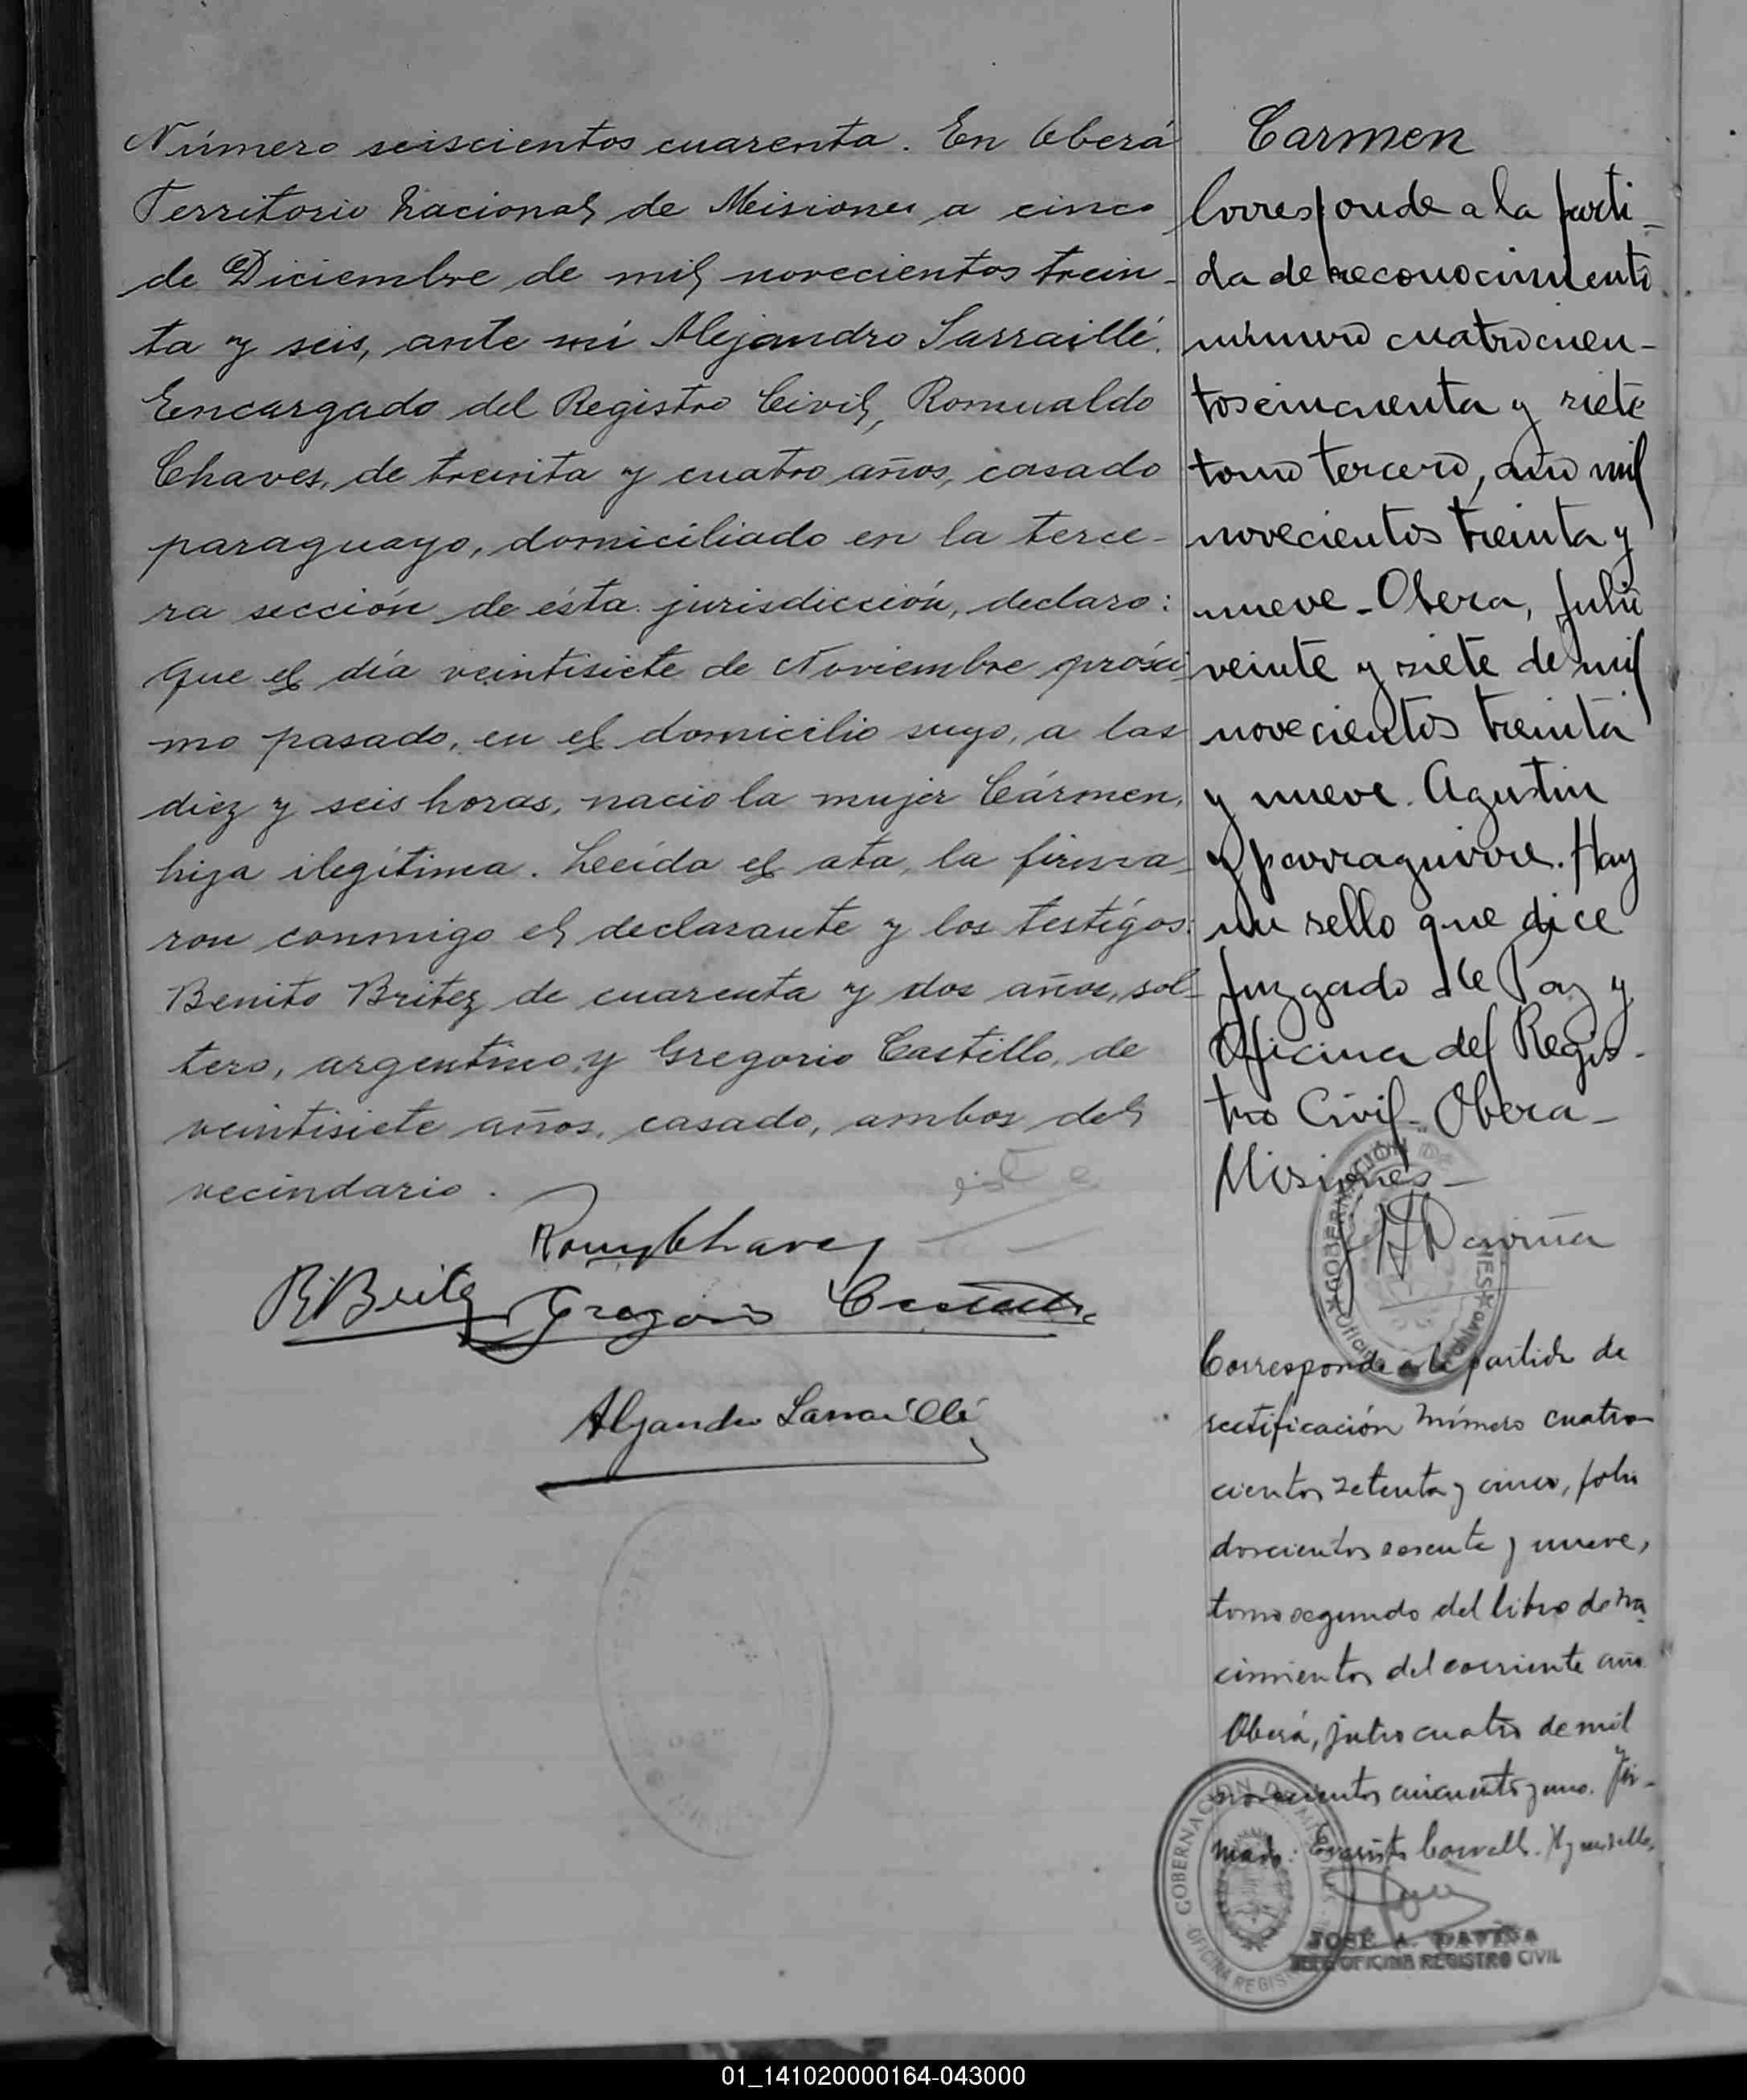 Número seiscientos cuarenta. En Oberá
Territorio Nacional de Misiones a cinco
de Diciembre de mil novecientos trein-
ta y seis, ante mi Alejandro Sarraillé.
Encargado del Registro Civil, Romualdo
Chaves, de treinta y cuatro años, casado
paraguayo, domiciliado en la terce-
ra sección de ésta jurisdicción, declaro:
Que el día veintisiete de Noviembre próxi-
mo pasado, en el domicilio suyo, a las
diez y seis horas, nacio la mujer Cármen,
hija ilegítima. Leeída el ata, la firma-
ron conmigo el declarante y los testígos:
Benito Britez de cuarenta y dos años, sol-
tero, argentino, y Gregorio Castillo, de
veintisiete años, casado, ambos del
vecindario.
Chavez
B Britez Gregorio Castillo
Alejandro Sarraillé
Carmen
Corresponde a la parti-
da de reconocimiento
número cuatrocien-
tos cincuenta y siete
tomo tercero, año mil
novecientos treinta y
nueve - Obera, Julio
veinte y siete de mil
novecientos treinta
y nueve. Agustin
Yparraguirre. Hay
un sello que dice
Juzgado de Paz y
Oficina del Regis-
tro Civil - Obera -
Misiones -
GOBERNACIÓN DE
Corresponde a la partida de
rectificación número cuatro-
cientos setenta y cinco, folio
doscientos sesenta y nueve,
tomo segundo del libro de na-
cimientos del corriente año.
Oberá, julio cuatro de mil
novecientos cincuenta y uno. Fir-
mado: Evaristo Hay un sello.
GOBERNACIÓN DE MISIONES
OFICINA REGIS
JOSÉ A.
JEFE OFICINA REGISTRO CIVIL
01_141020000164-043000